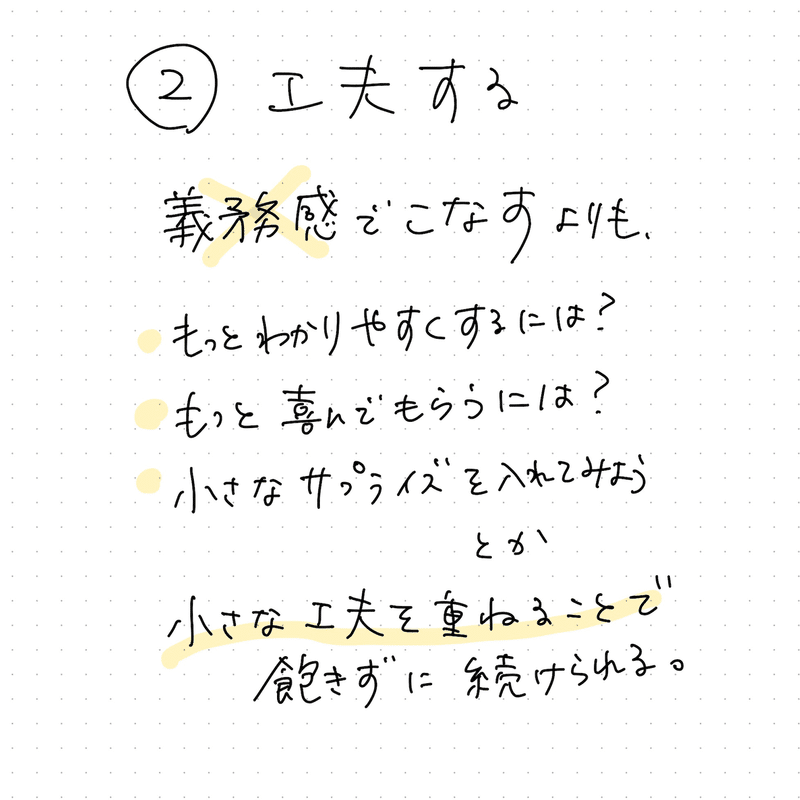 ② 工夫する
義務感でこなすよりも、
もっとわかりやすくするには?
もっと喜んでもらうには?
小さなサプライズを入れてみよう
とか
小さな工夫を重ねることで
飽きずに続けられる。